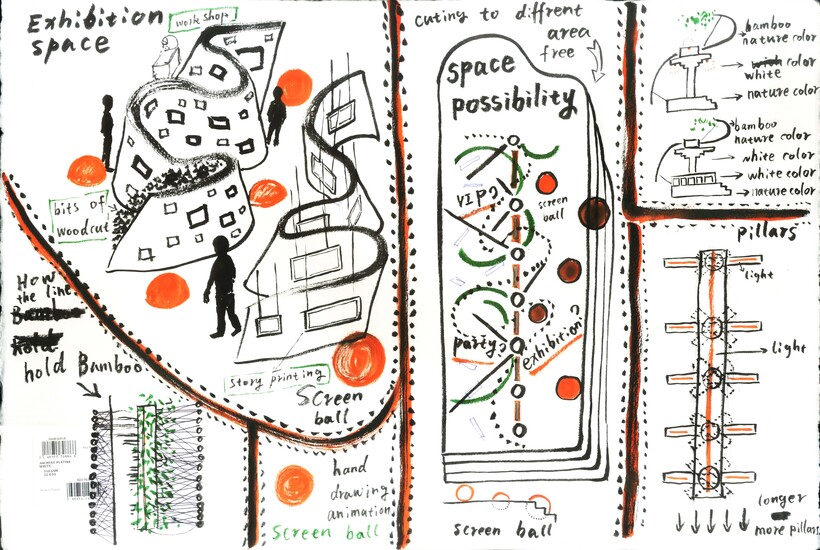 Exhibition
space
work shop
bits of
woodcut
How
the line
hold Bamboo
story printing
Screen
ball
hand
drawing
animation
Screen ball
cuting to diffrent
area
free
space
possibility
VIP?
screen
ball
party?
exhibition?
screen ball
bamboo
nature color
color
white
nature color
bamboo
nature color
white color
white color
nature color
pillars
light
light
longer
more pillars